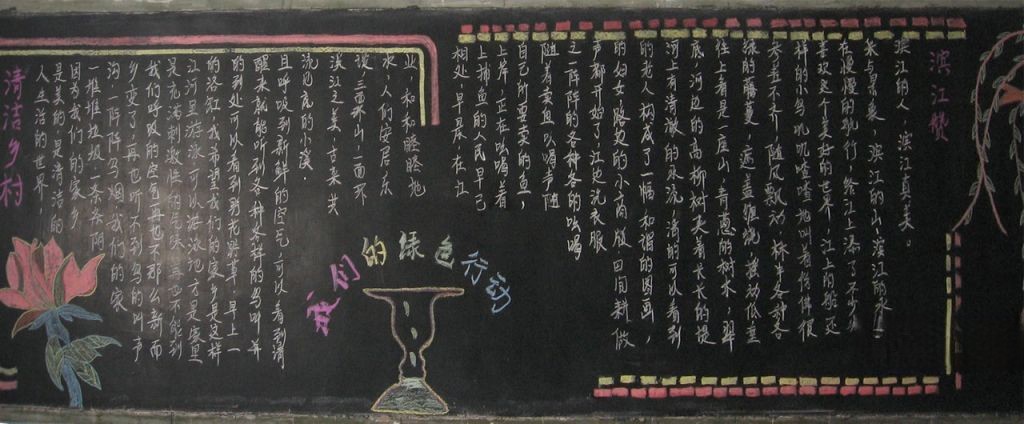 滨江赞
滨江的人，滨江真美。
我喜爱，滨江的山，滨江的水，
在慢慢的 行，给江上添了不少
喜欢这个美好的世界，江上的轮更
样的小鸟叽叽喳喳地叫着仿佛很
参差不齐，随风飘动，
绿的藤蔓，遮盖缠绕，
往上看是一座山，青青葱的树木，翠
底，河边的高柳树笑着长长的
河上有清澈的水流，清的可以看到
的老人构成了一幅和谐的图画，
的妇女路边的小商贩，田间耕做
声都开始了，江边洗衣服
之一阵阵的各种各的吆喝
自己所要卖的鱼，
随着卖鱼吆喝声随
上岸，正在吆喝着
上捕鱼的人民早已
相处，早晨，在江
业，和和睦睦地
水，人们安居乐
设，三面环山，一面环
滨江之美，古来共
浅见底的小溪
且呼吸到新鲜的空气，可以看到清
醒来就能听到各种各样的鸟叫，并
的到处可以看到到花与草，早上一
的浴缸，我希望我们的家乡是这样
江河里游泳可以游泳池，才是家里
是充满刺激性的气味，再也不能到
我们呼吸的空气再也不那么新而
乡变了，再也听不到鸟的叫声
沟，一阵阵乌烟，我们的家
一堆堆垃圾，一条条阴
因为我们的家乡，
是美的，是清洁的
人生活的世界，
清洁乡村
我们的绿色行动